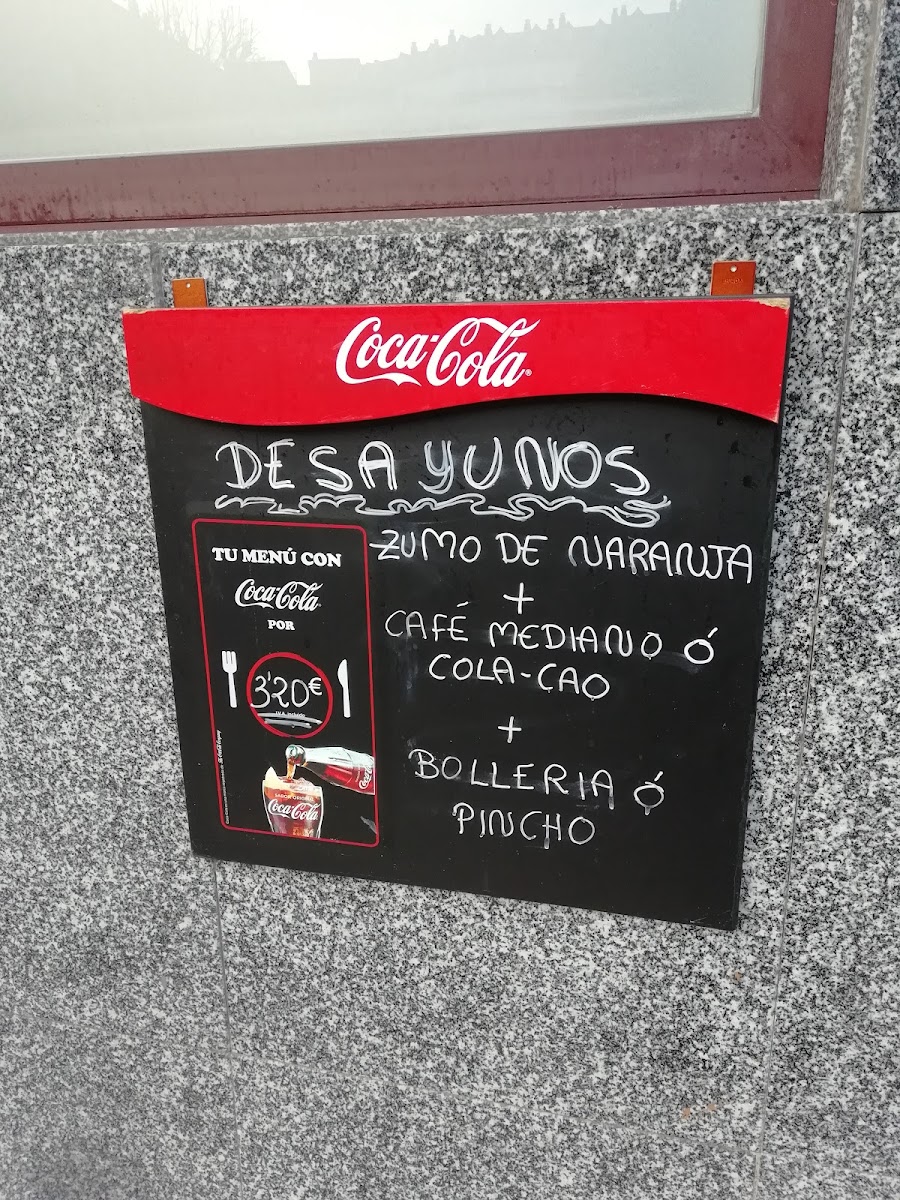 Coca-Cola
DESAYUNOS
TU MENÚ CON
Coca-Cola
POR
3'20€
I.V.A. incluido
SABOR ORIGINAL
Coca-Cola
ZUMO DE NARANJA
+
CAFÉ MEDIANO Ó
COLA-CAO
+
BOLLERIA Ó
PINCHO